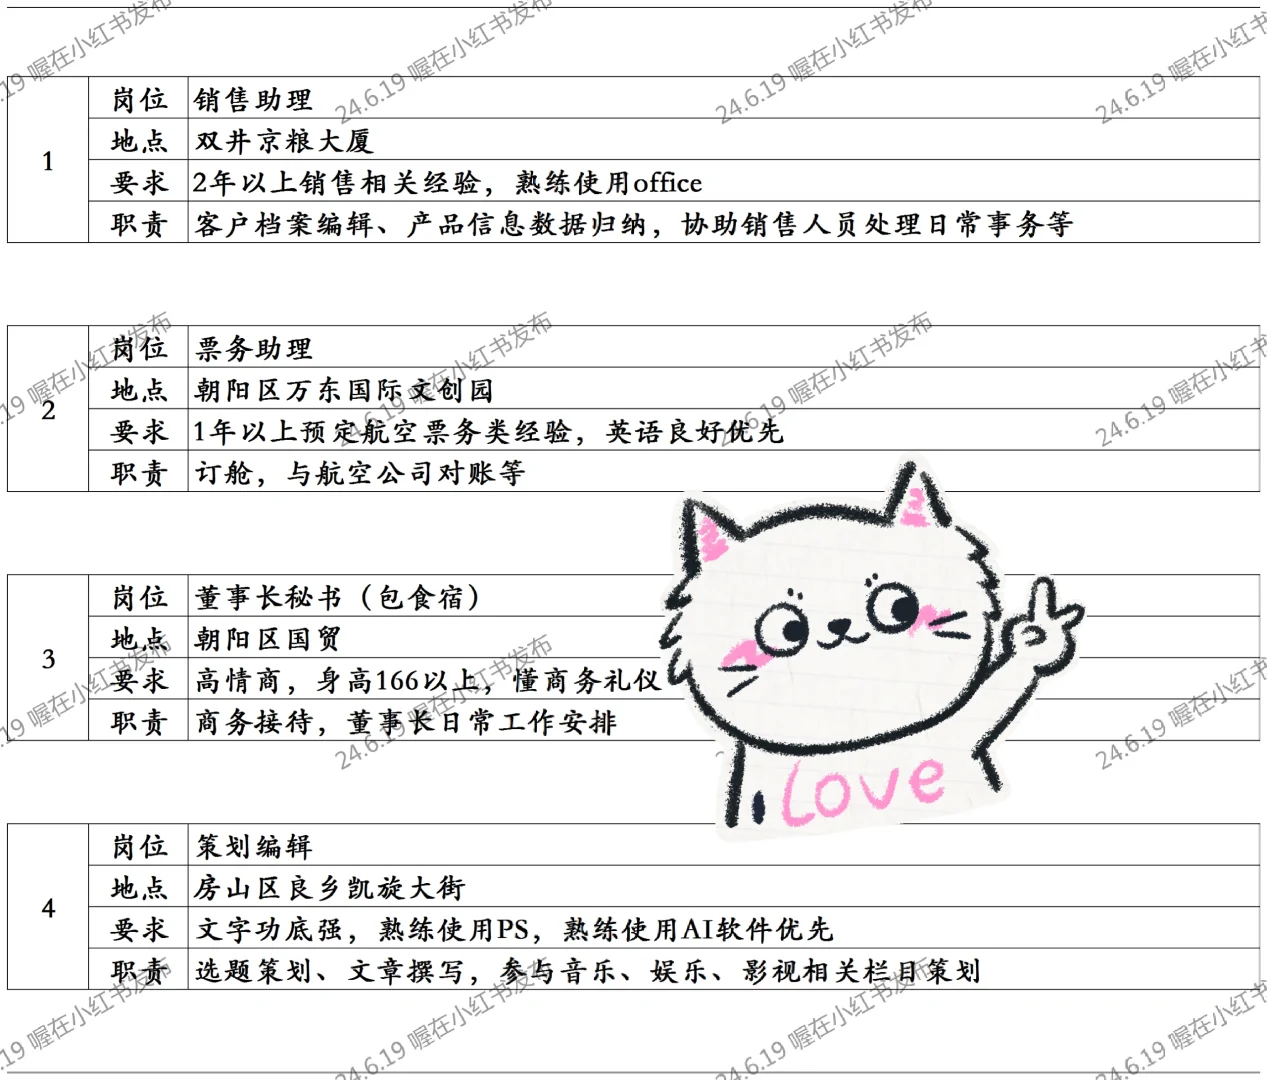 1
岗位 销售助理
地点 双井京粮大厦
要求 2年以上销售相关经验，熟练使用office
职责 客户档案编辑、产品信息数据归纳，协助销售人员处理日常事务等
2
岗位 票务助理
地点 朝阳区万东国际文创园
要求 1年以上预定航空票务类经验，英语良好优先
职责 订舱，与航空公司对账等
3
岗位 董事长秘书（包食宿）
地点 朝阳区国贸
要求 高情商，身高166以上，懂商务礼仪
职责 商务接待，董事长日常工作安排
love
4
岗位 策划编辑
地点 房山区良乡凯旋大街
要求 文字功底强，熟练使用PS，熟练使用AI软件优先
职责 选题策划、文章撰写，参与音乐、娱乐、影视相关栏目策划
24.6.19 喔在小红书发布